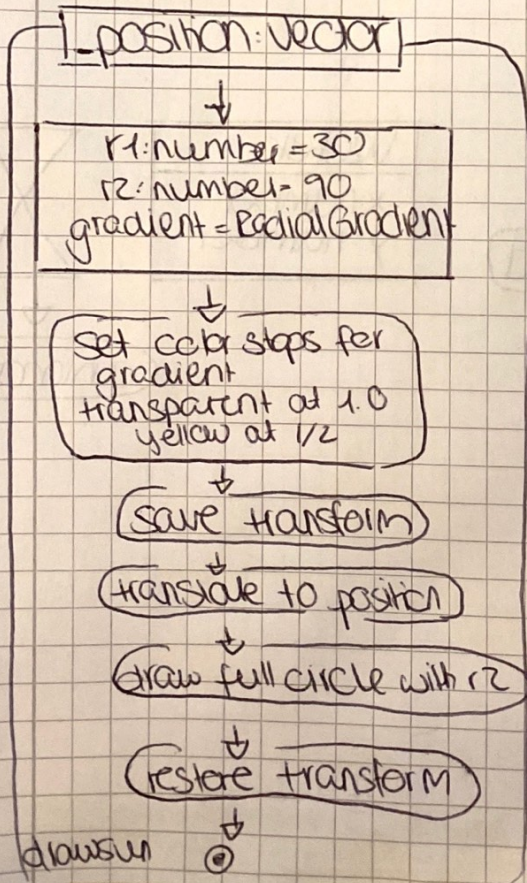 _position: vector
r1: number = 30
r2: number = 90
gradient = RadialGradient
set color stops for
gradient
transparent at 1.0
yellow at 1/2
save transform
translate to position
draw full circle with r2
restore transform
drawsun